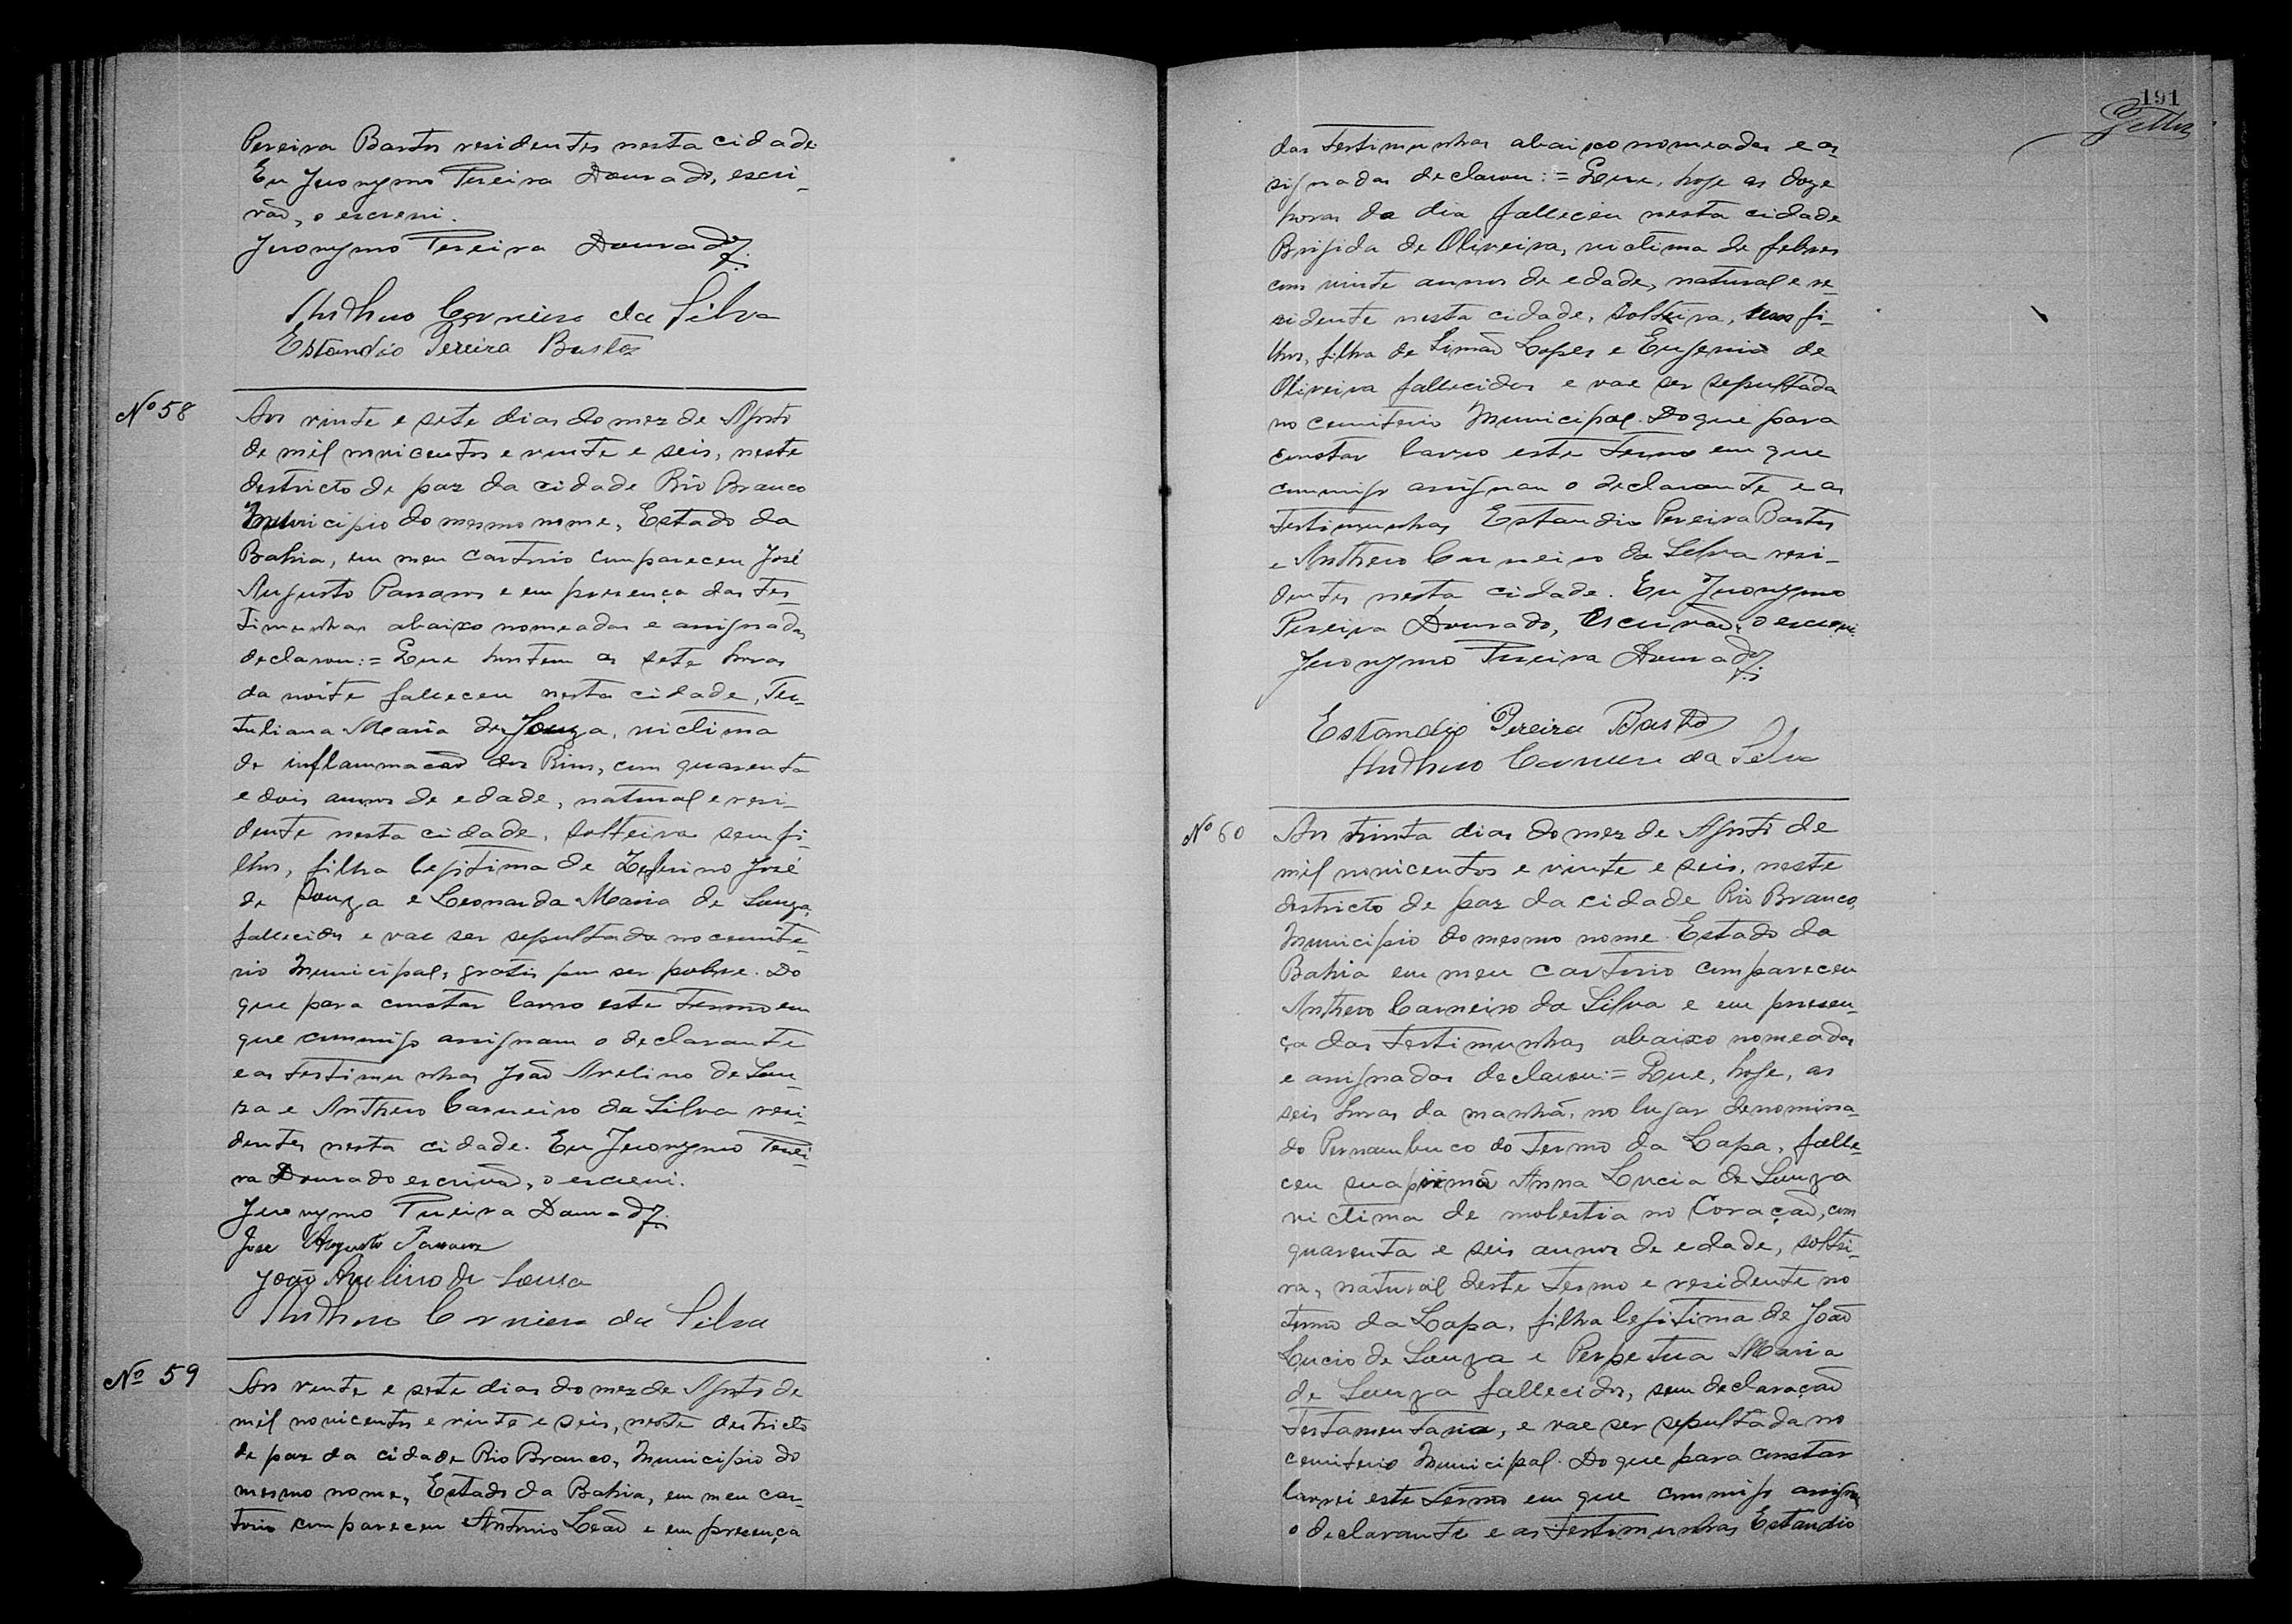 Pereira Bastos residentes nesta cidade
Eu Jeronymo Pereira Dourado, escri-
vão, o escrevi.
Jeronymo Pereira Dourado
Anthero Carneiro da Silva
Estandio Pereira Bastos
Nº 58
Aos vinte e sete dias do mez de Agosto
de mil novicentos e vinte e seis, neste
destricto de paz da cidade Rio Branco
Municipio do mesmo nome, Estado da
Bahia, em meu cartorio compareceu José
Augusto Passaros e em presença das tes-
timunhas abaixo nomeadas e assignadas
declarou:= Que hontem as sete horas
da noite falleceu nesta cidade, Ter-
tuliana Maria de Souza, victima
de inflammacão dos Rins, com quarenta
e dois annos de edade, natural e resi-
dente nesta cidade, solteira sem fi-
lhos, filha legitima de Zeferino José
de Souza e Leonarda Maria de Souza,
fallecidos e vae ser sepultada no cemite-
rio Municipal, gratis por ser pobre. Do
que para constar lavro este termo em
que commigo assignam o declarante
e as testimunhas João Avelino de Sou-
za e Anthero Carneiro da Silva resi-
dentes nesta cidade. Eu Jeronymo Perei-
ra Dourado escrivão, o escrevi.
Jeronymo Pereira Dourado
Jose Augusto Passaros
João Avelino de Souza
Anthero Carneiro da Silva
Nº 59
Aos vinte e sete dias do mez de Agosto de
mil novicentos e vinte e seis, neste destricto
de paz da cidade Rio Branco, Municipio do
mesmo nome, Estado da Bahia, em meu car-
torio compareceu Antonio Leão e em presença
191
das testimunhas abaixo nomeadas e as-
signadas declarou:= Que, hoje as doze
horas do dia falleceu nesta cidade
Brigida de Oliveira, victima de febres
com vinte annos de edade, natural e re-
sidente nesta cidade, solteira, sem fi-
lhos, filha de Simão Lopes e Eugenia de
Oliveira fallecidos e vae ser sepultada
no cemiterio Municipal. Do que para
constar lavro este termo em que
commigo assignam o declarante e as
testimunhas Estandio Pereira Bastos
e Anthero Carneiro da Silva resi-
dentes nesta cidade. Eu Jeronymo
Pereira Dourado, Escrivão, o escrevi.
Jeronymo Pereira Dourado
Estandio Pereira Bastos
Anthero Carneiro da Silva
Nº 60
Aos trinta dias do mez de Agosto de
mil novicentos e vinte e seis, neste
destricto de paz da cidade Rio Branco,
Municipio do mesmo nome Estado da
Bahia em meu cartorio compareceu
Anthero Carneiro da Silva e em presen-
ça das testimunhas abaixo nomeadas
e assignadas declarou:= Que, hoje, as
seis horas da manhã, no lugar denomina-
do Pernambuco do Termo da Lapa, falle-
ceu sua prima Anna Lucia de Souza
victima de molestia no Coração, com
quarenta e seis annos de edade, soltei-
ra, natural deste termo e residente no
termo da Lapa, filha legitima de João
Lucio de Souza e Perpetua Maria
de Souza fallecidos, sem declaração
testamentaria, e vae ser sepultada no
cemiterio Municipal. Do que para constar
lavrei este termo em que commigo assigna
o declarante e as testimunhas Estandio